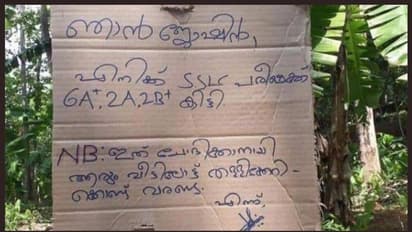 ഞാൻ ജ്യോഷിൻ,
എനിക്ക് SSLC പരീക്ഷക്ക്
6A+, 2A, 2B+ കിട്ടി
NB: ഇത് ചോദിക്കാനായി
ആരും വീട്ടിലോട്ട് തള്ളിക്കേറി-
ക്കൊണ്ട് വരണ്ട.
എന്ന്,